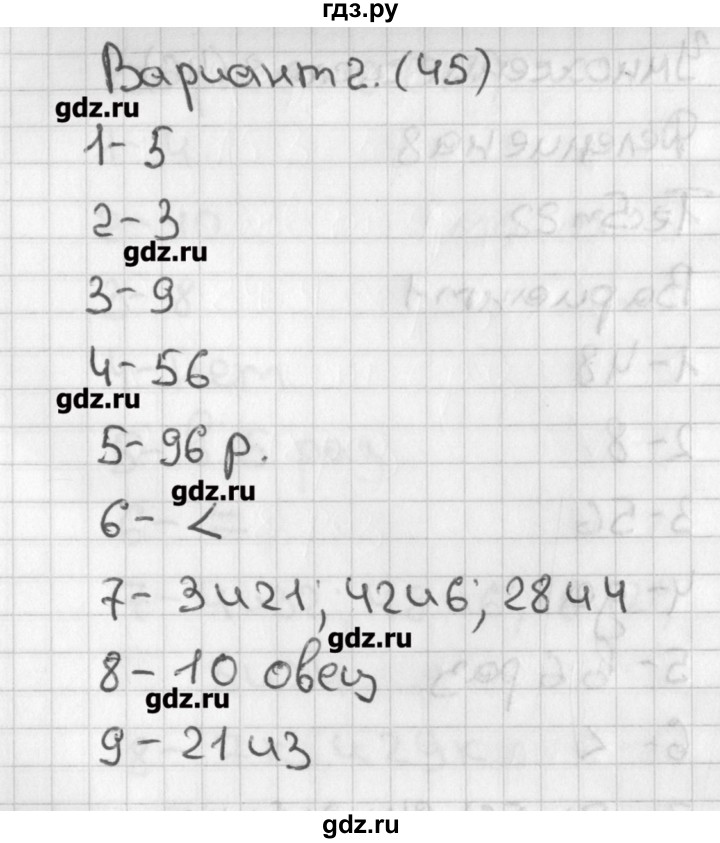 гдз.ру
Вариант 2. (45)
gdz.ru
1- 5
2- 3
gdz.ru
3- 9
4- 56
gdz.ru
5- 96 р.
gdz.ru
6- <
7- 3 и 21; 42 и 6; 28 и 4
gdz.ru
8- 10 овец
gdz.ru
9- 21 и 3
gdz.ru